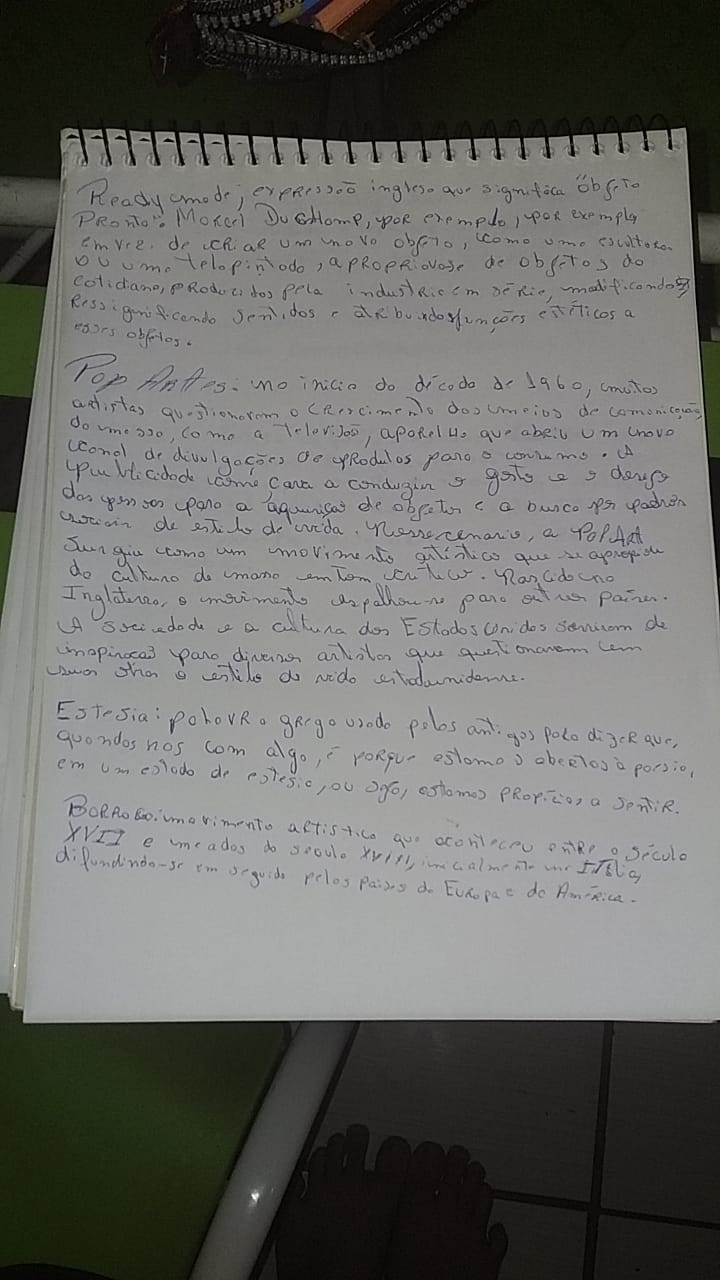 Ready made, expressão inglesa que significa "Objeto
Pronto". Marcel Duchamp, por exemplo, por exemplo
Em vez de criar um novo objeto, como uma escultura
ou uma tela pintada, apropriavase de objetos do
cotidiano, produzidos pela industria em série, modificando
Ressignificando sentidos e atribuindo funções estéticas a
esses objetos.
Pop Artes: no inicio da década de 1960, muitos
artistas questionaram o crescimento dos meios de comunicação
da massa, como a televisão, aparelho que abriu um novo
canal de divulgações de produtos para o consumo. A
publicidade come cara a conduzir o gosto e o desejo
das pessoas para a aquisição de objetos e a busca por padrões
sociais de estilo de vida. Nesse cenario, a Pop Art
Surgiu como um movimento artístico que se apropria
da cultura de massa em tom critico. Nascido na
Inglaterra, o movimento espalhou-se para outros países.
A sociedade e a cultura dos Estados Unidos serviram de
inspiração para diversos artistas que questionavam em
suas obras o estilo de vida estadunidense.
Estesia: palavra grega usada pelos antigos para dizer que,
quondos nos com algo, é porque estamos abertos à poesia,
em um estado de estesia, ou seja, estamos propícios a sentir.
Barroco: movimento artístico que aconteceu entre o século
XVII e meados do século XVIII, inicialmente na Itália,
difundindo-se em seguida pelos países da Europa e da América.